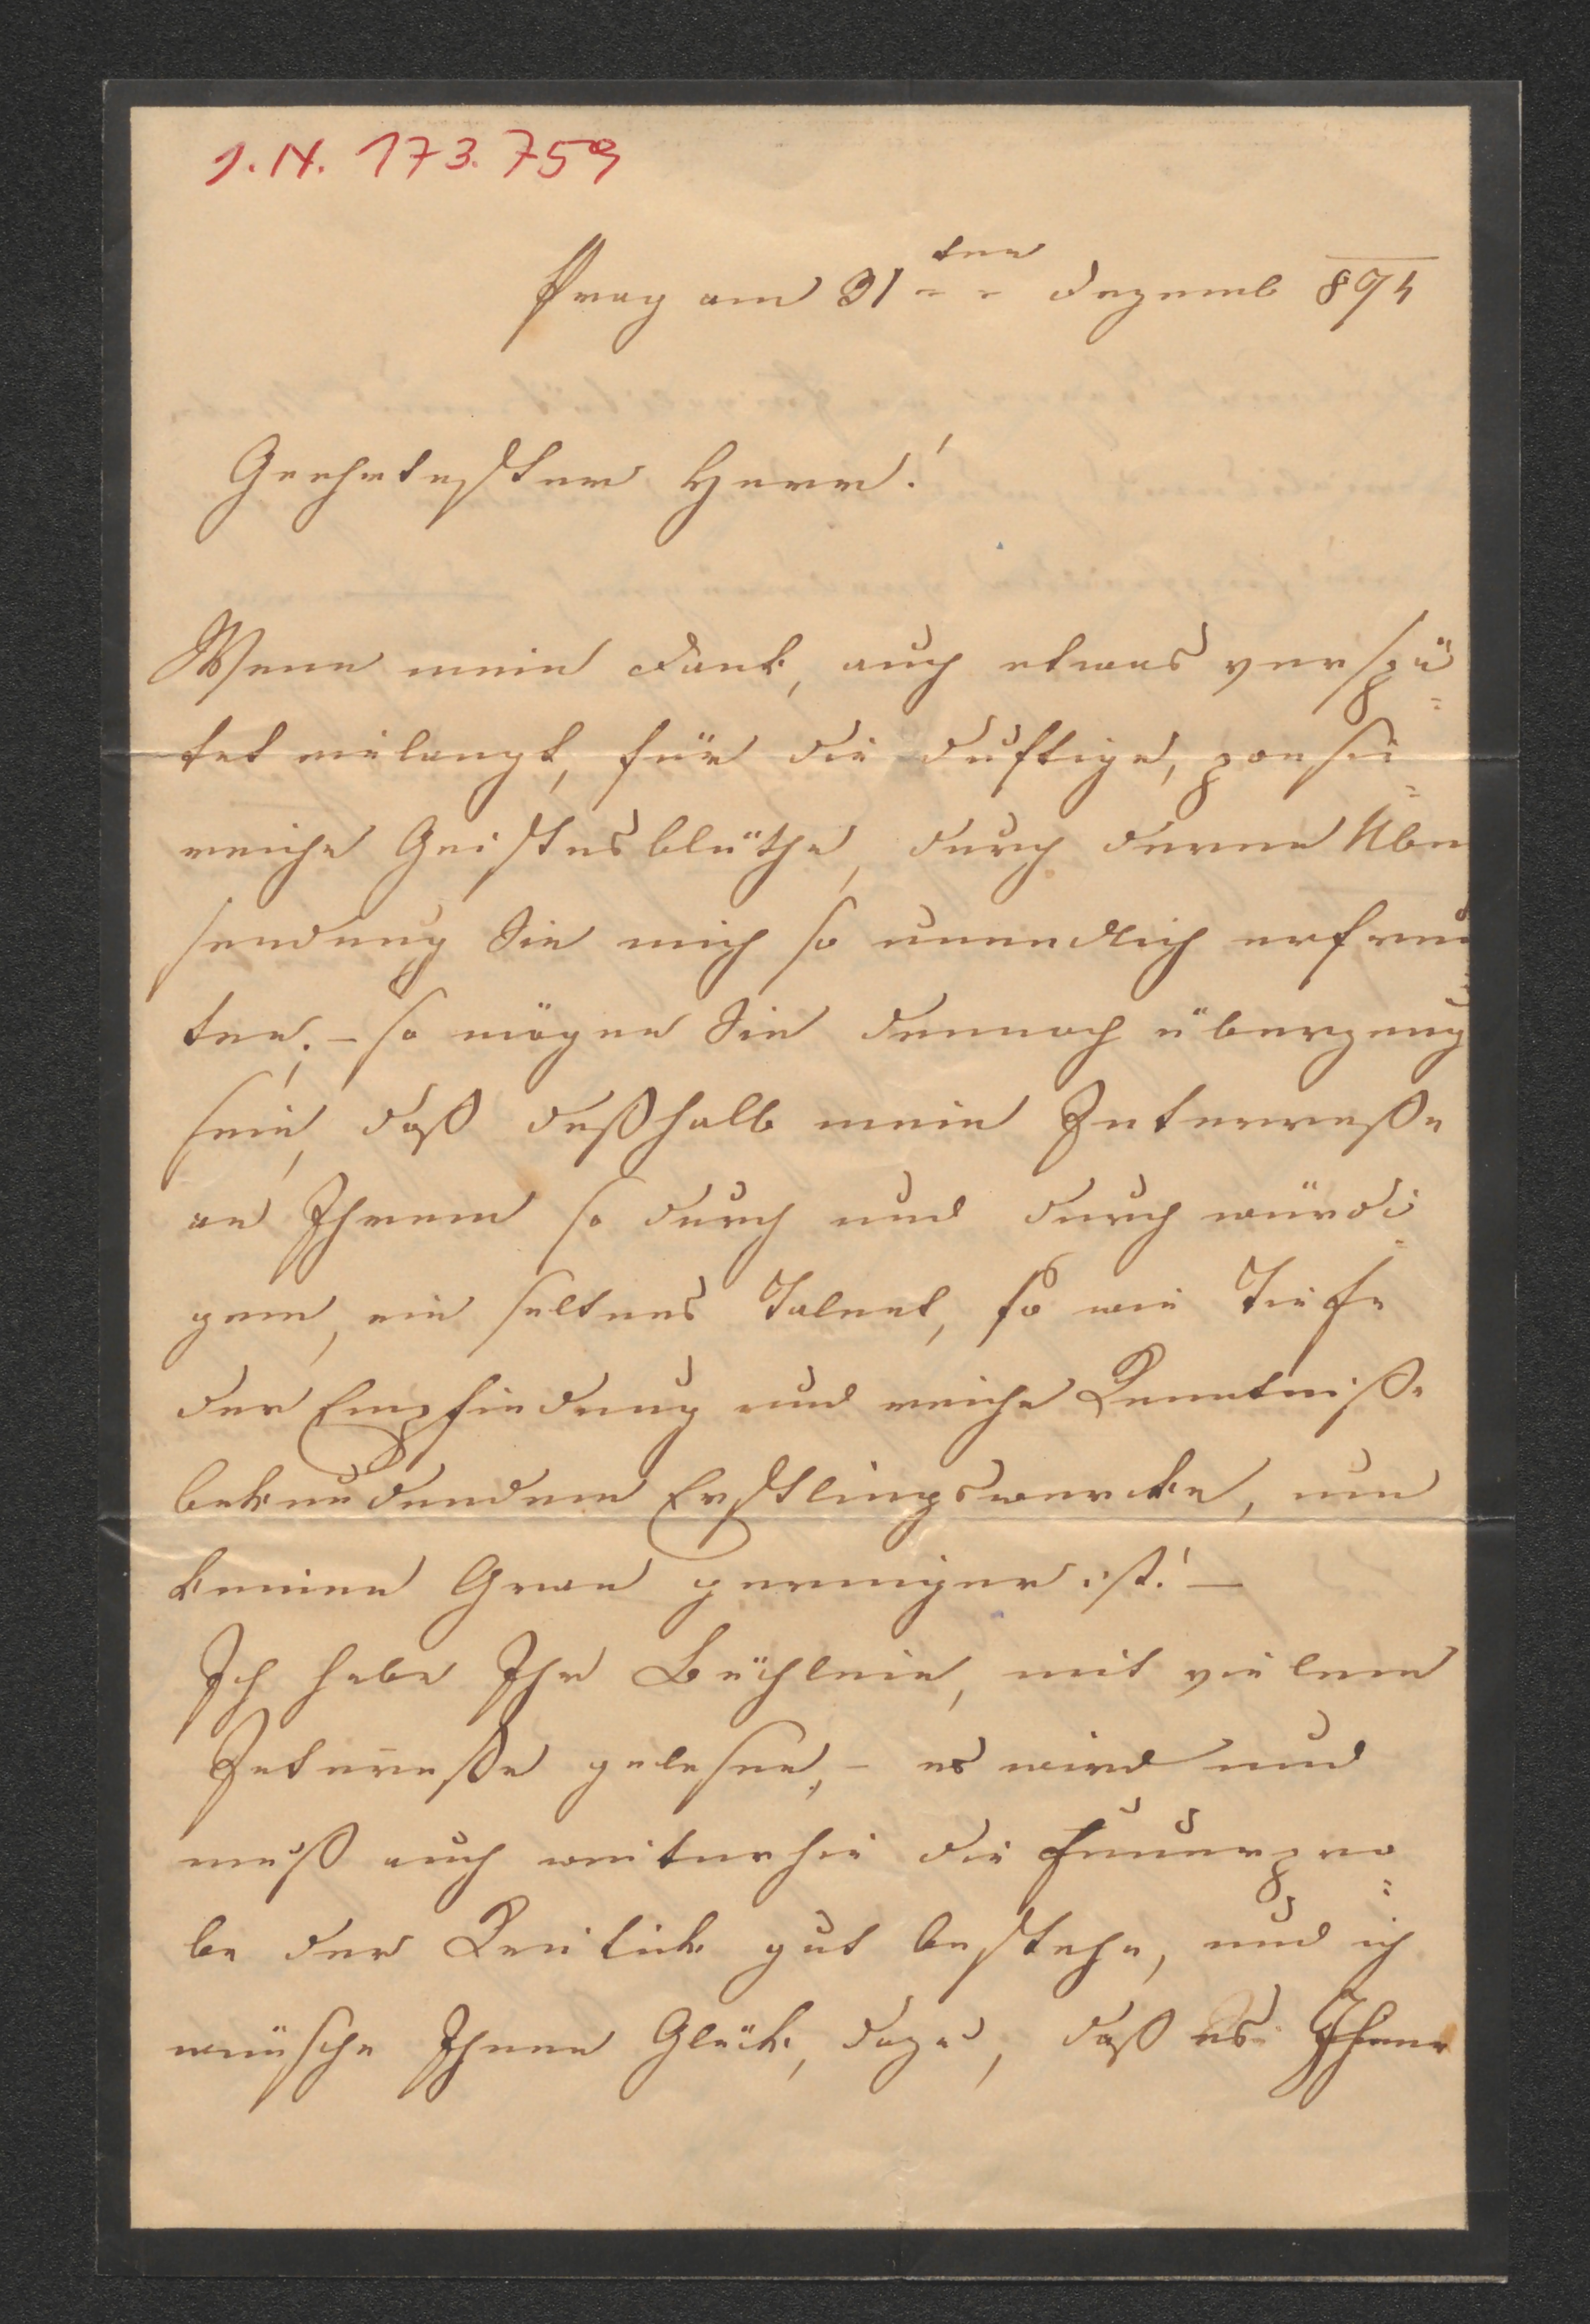 I.N. 173.759
Prag am 31ten Dezemb 894
Geehrtester Herr!
Wenn mein Dank, auch etwas verspä=
tet einlangt, für die duftige, poesie=
reiche Geistesblüthe, durch deren Uber
sendung Sie mich so unendlich erfreu
ten; – so mögen Sie dennoch überzeug
sein, daß deßhalb mein Interreße
an Ihrem so durch und durch würdi=
gem, ein seltenes Talent, so wie Tiefe
der Empfindung und reiche Kenntniße
bekundendem Erstlingswercke, um
keinen Gran geringer ist! –
Ich habe Ihr Büchlein, mit vielem
Interreße gelesen, – es wird und
muß auch weiterhin die Feuerpro=
be der Kritick gut bestehe, und ich
wünsche Ihnen Glück, dazu, daß es Ihnen